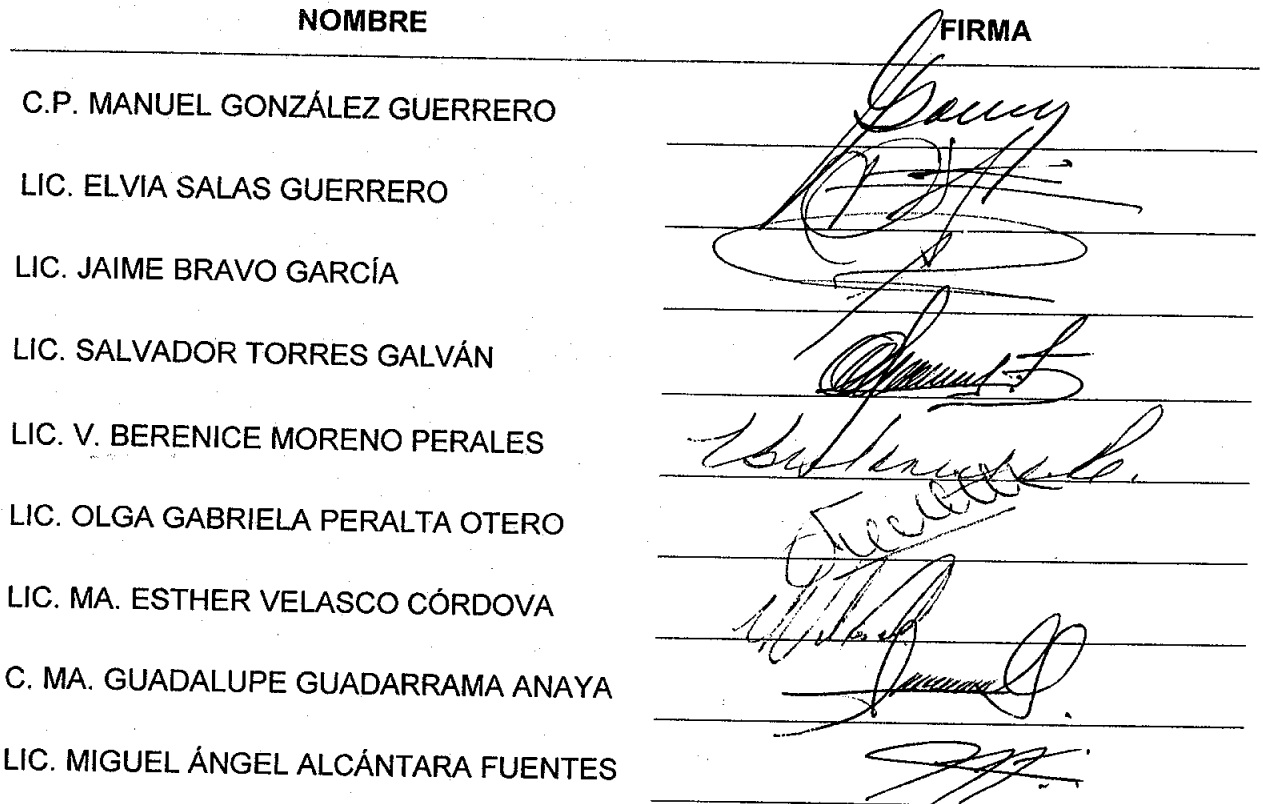 NOMBRE FIRMA
C.P. MANUEL GONZÁLEZ GUERRERO
LIC. ELVIA SALAS GUERRERO
LIC. JAIME BRAVO GARCÍA
LIC. SALVADOR TORRES GALVÁN
LIC. V. BERENICE MORENO PERALES
LIC. OLGA GABRIELA PERALTA OTERO
LIC. MA. ESTHER VELASCO CÓRDOVA
C. MA. GUADALUPE GUADARRAMA ANAYA
LIC. MIGUEL ÁNGEL ALCÁNTARA FUENTES